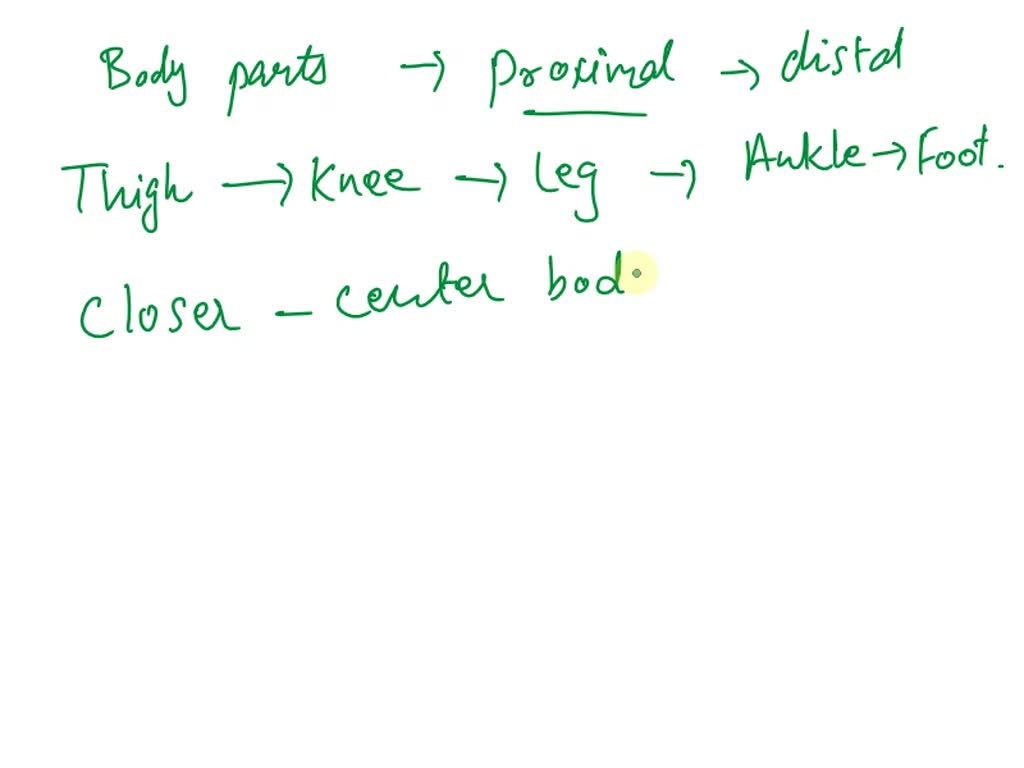 Body parts → Proximal → distal
Thigh → Knee → Leg → Ankle → Foot.
Closer - center bod